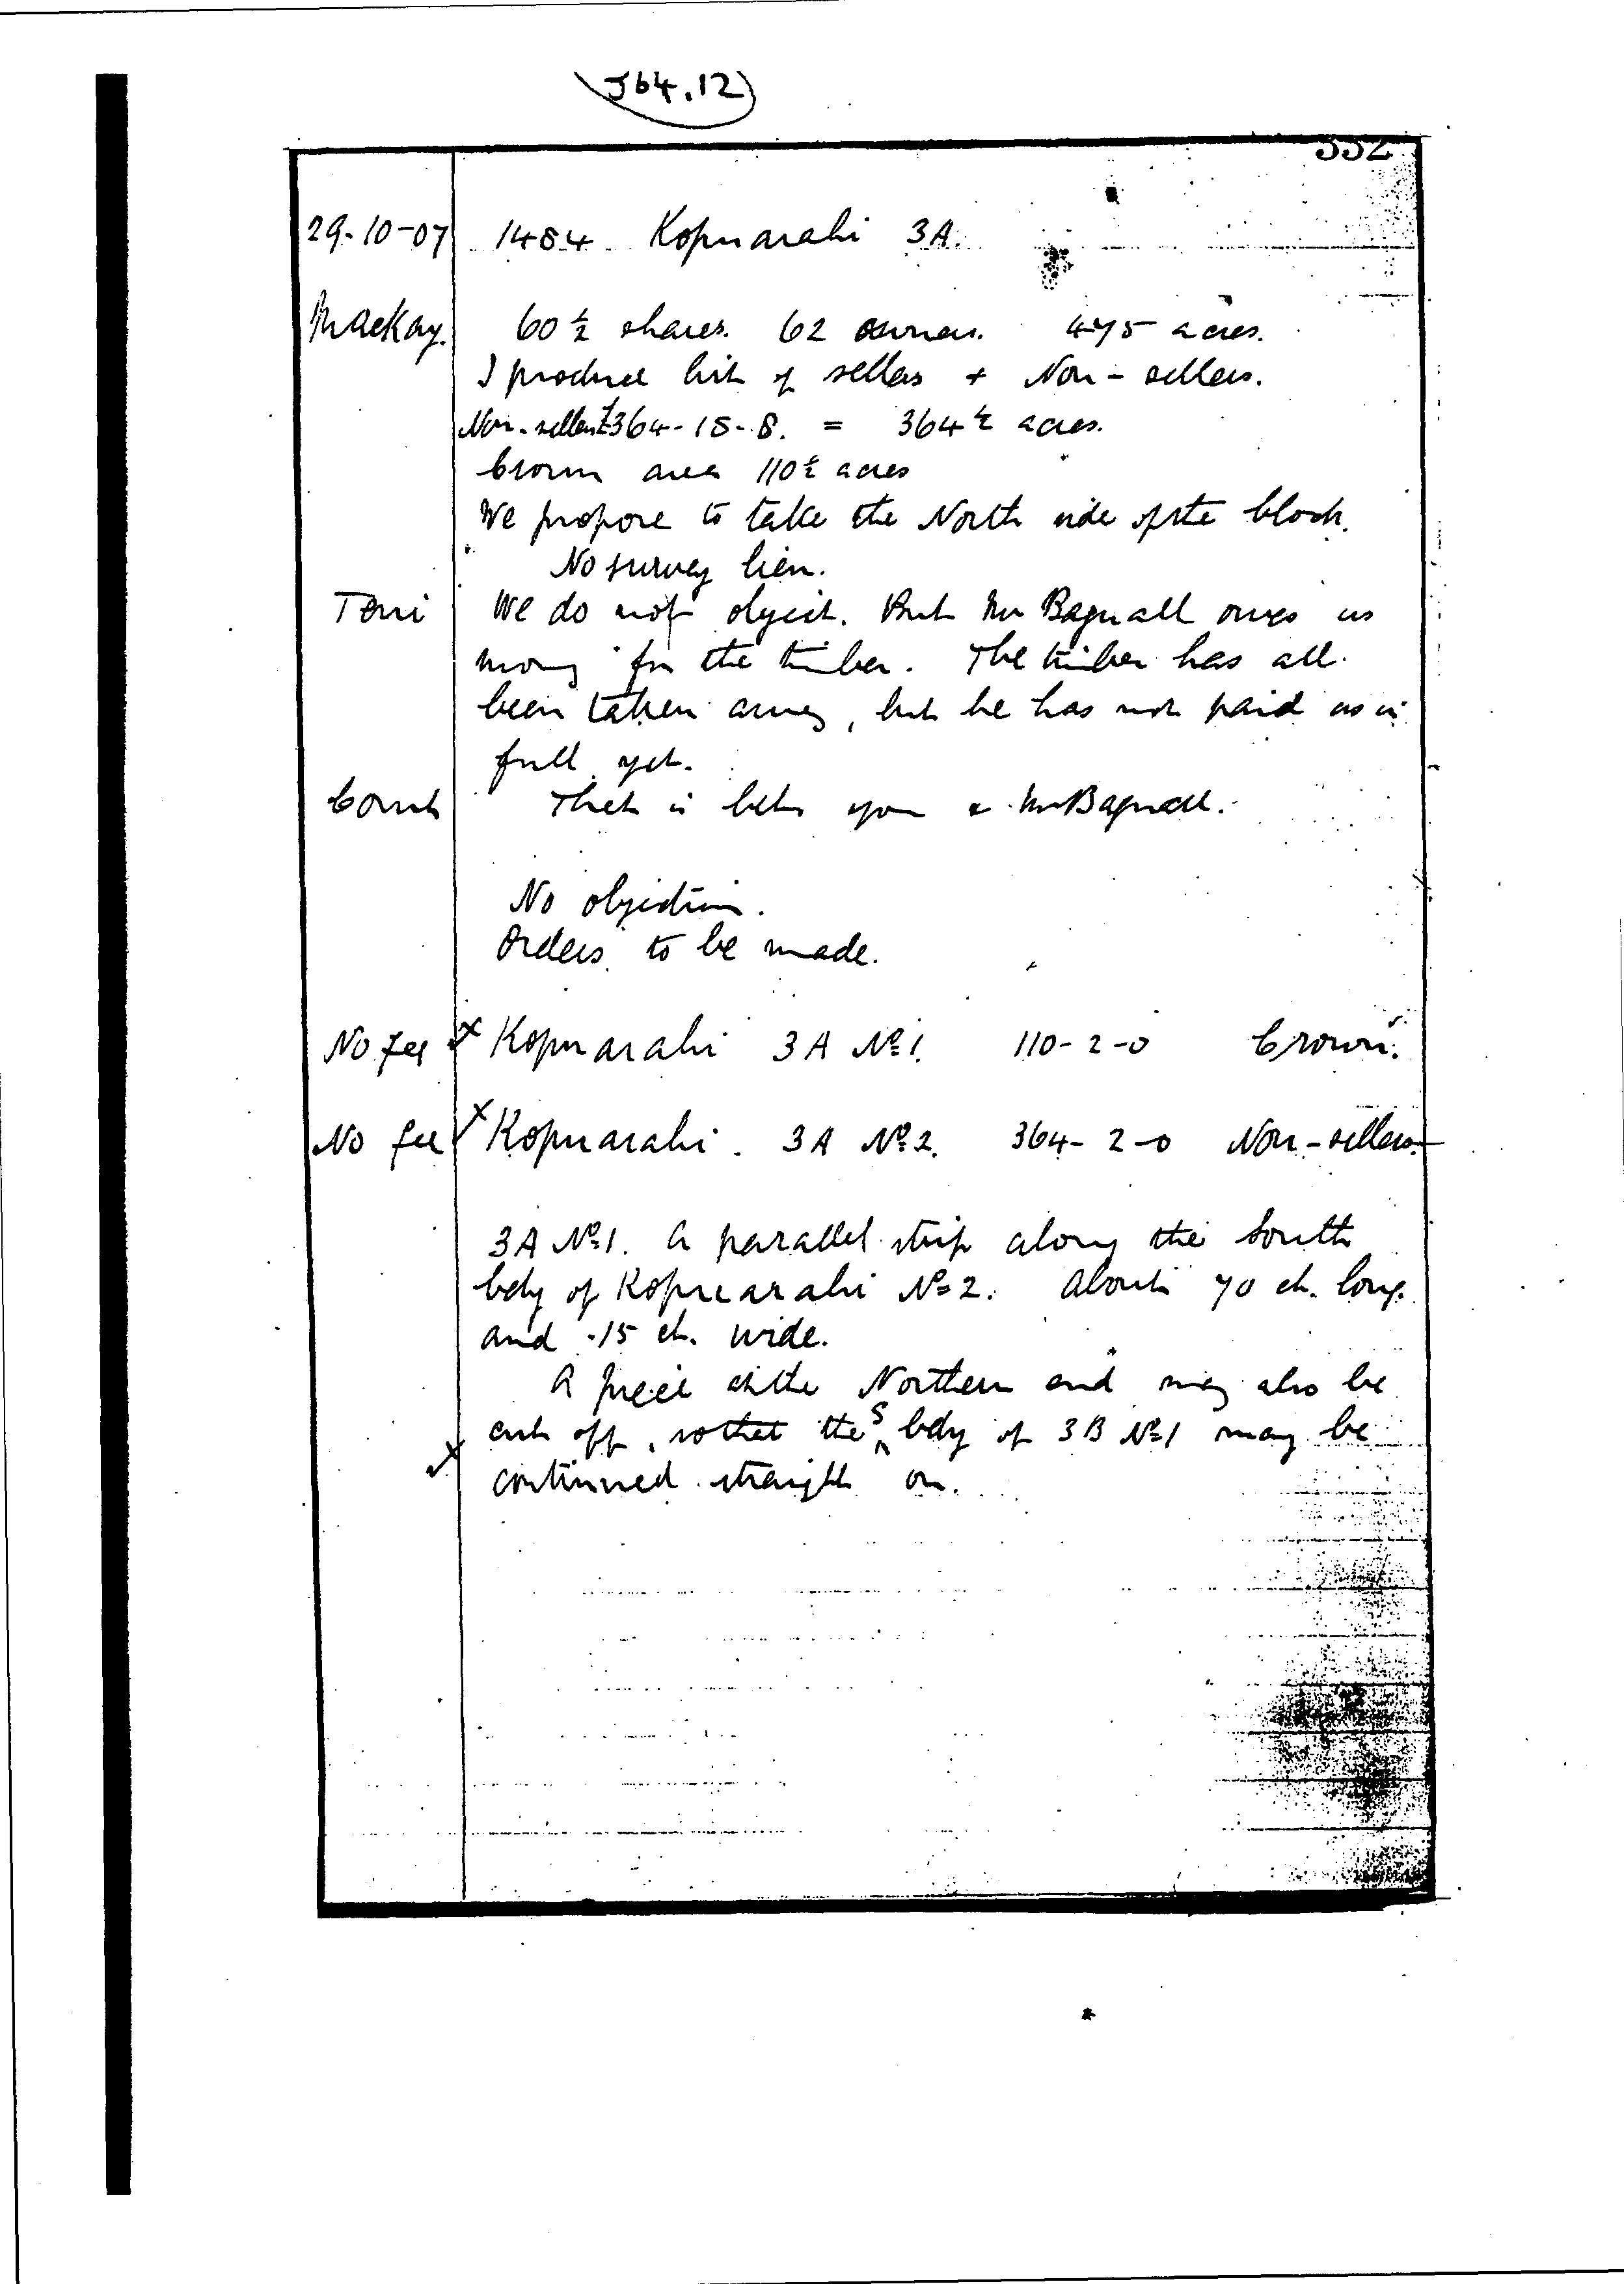 J64.12
332
29-10-07 1484 Kopuarahi 3A.
Mackay. 60½ shares. 62 owners. 475 acres.
I produce list of sellers + Non-sellers.
Non-sellers £364-15-8. = 364½ acres.
Crown area 110½ acres
We propose to take the North side of the block.
No survey lien.
We do not object. But Mr Bagnall owes us
money for the timber. The timber has all
been taken away, but he has not paid us in
full yet.
Court That is betn you & Mr Bagnall.
No objection.
Orders to be made.
No fee x Kopuarahi 3A No1. 110-2-0 Crown.
No fee x Kopuarahi. 3A No2. 364-2-0 Non-sellers.
3A No1. A parallel strip along the South
bdy of Kopuarahi No2. About 70 ch. long
and 15 ch. wide.
A piece at the Northern end may also be
cut off, so that the S bdy of 3B No1 may be
x continued straight on.